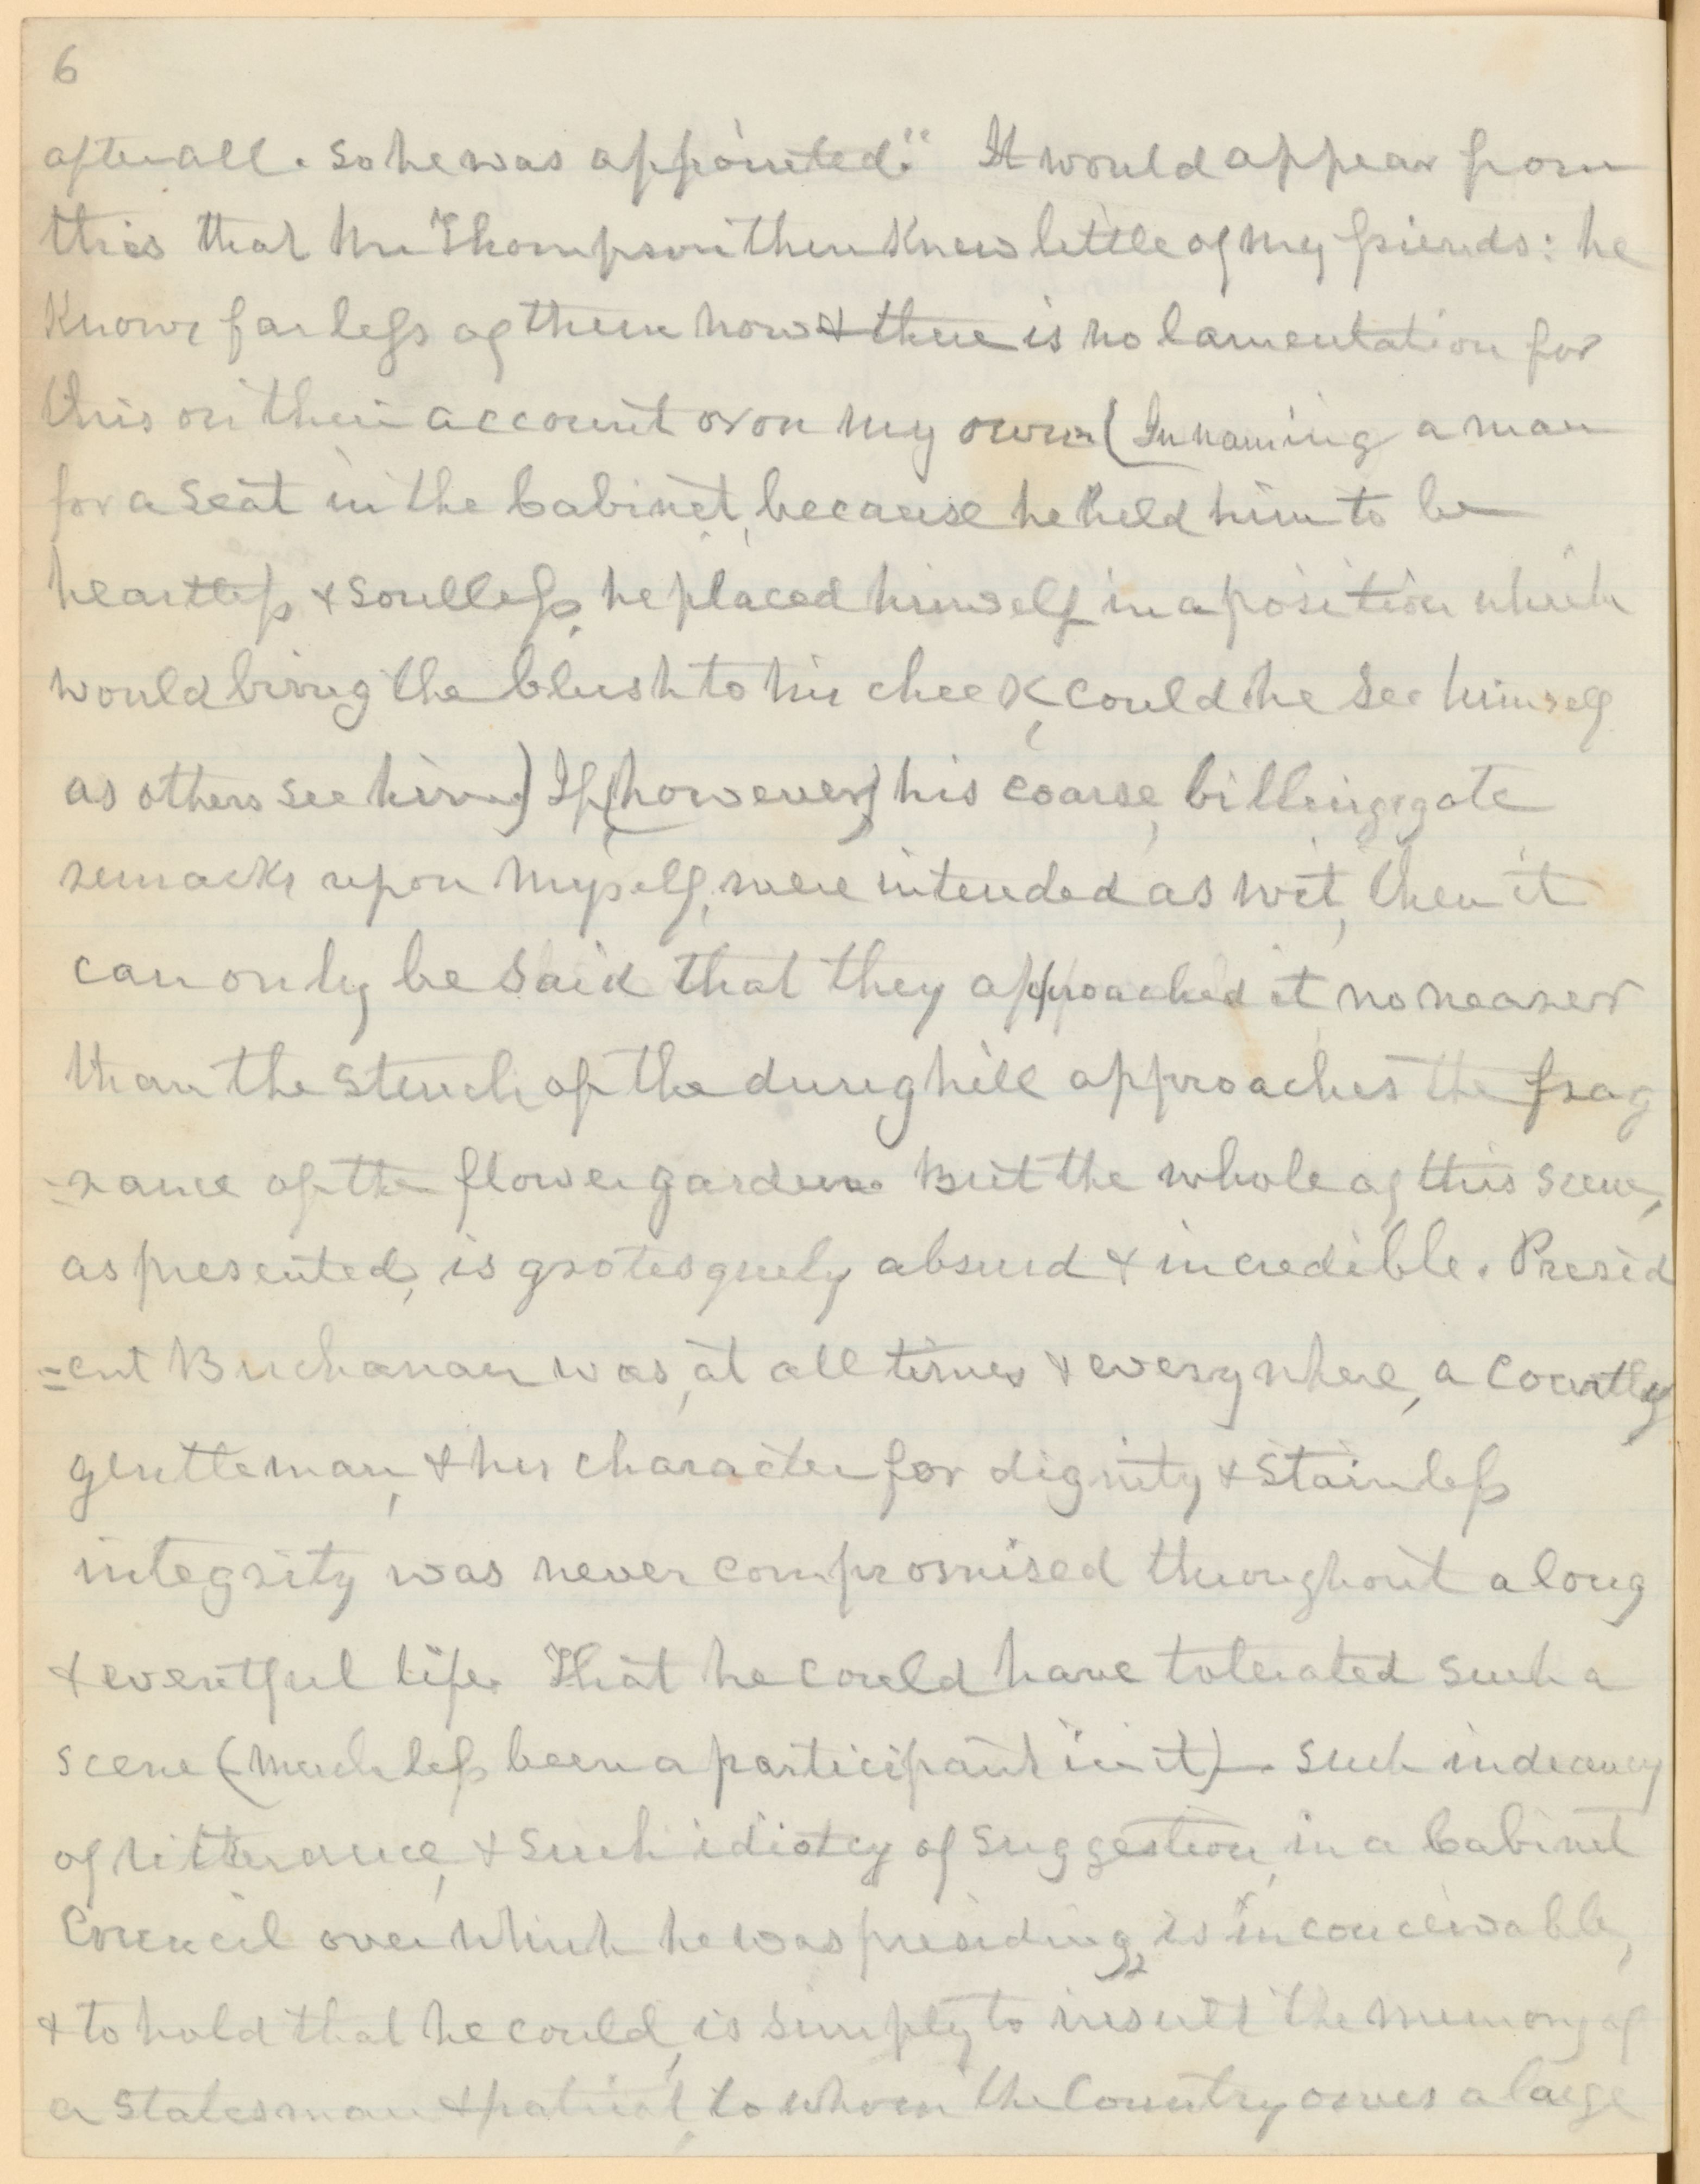 6
after all. So he was appointed." It would appear from
this that Mr Thompson then knew little of my friends: he
knows far less of them now & there is no lamentation for
this on their account or on my own. (In naming a man
for a seat in the Cabinet, because he held him to be
heartless & soulless, he placed himself in a position which
would bring the blush to his cheek, could he see himself
as others see him.) If, (however,) his coarse, billingsgate
remarks upon myself, were intended as wit, then it
can only be said that they approached it no nearer
than the stench of the dunghill approaches the frag
=rance of the flower garden. But the whole of this scene,
as presented, is grotesquely absurd & incredible. Presid
=ent Buchanan was, at all times & everywhere, a courtly
gentleman, & his character for dignity & stainless
integrity was never compromised throughout a long
& eventful life. That he could have tolerated such a
scene (much less been a participant in it) - such indecency
of utterance, & such idiotcy of suggestion, in a Cabinet
Council over which he was presiding, is inconceivable,
& to hold that he could, is simply to insult the memory of
a statesman & patriot, to whom the Country owes a large